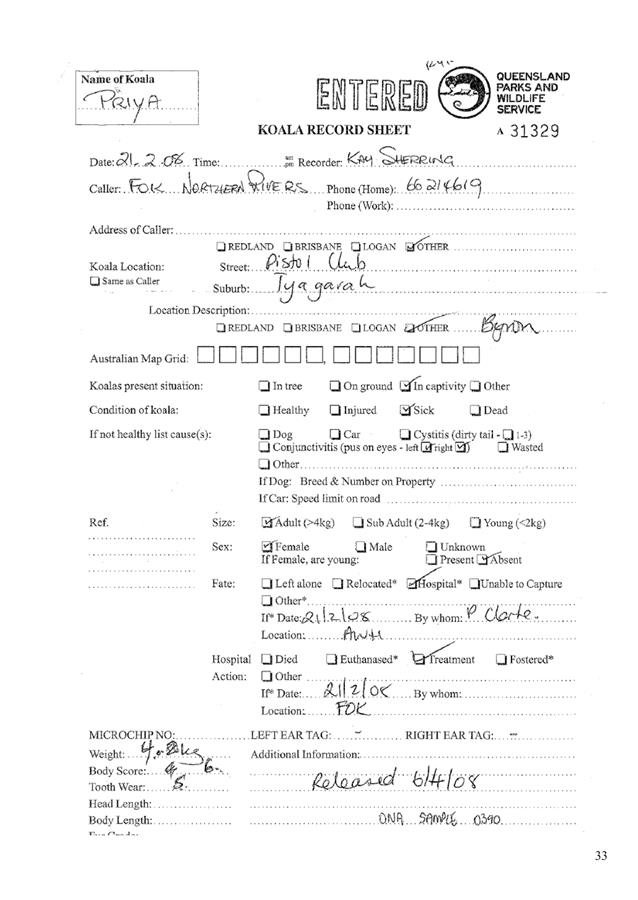 Name of Koala
PRIYA
ENTERED
QUEENSLAND
PARKS AND
WILDLIFE
SERVICE
KOALA RECORD SHEET
A 31329
Date: 21.2.08 Time: am pm Recorder: KAY SHERRING
Caller: FOK NORTHERN RIVERS Phone (Home): 66214619
Phone (Work):
Address of Caller:
REDLAND BRISBANE LOGAN OTHER
Koala Location: Street: Pistol Club
Same as Caller
Suburb: Tyagarah
Location Description:
REDLAND BRISBANE LOGAN OTHER Byron
Australian Map Grid:
Koalas present situation: In tree On ground In captivity Other
Condition of koala: Healthy Injured Sick Dead
If not healthy list cause(s): Dog Car Cystitis (dirty tail - 1-3)
Conjunctivitis (pus on eyes - left right) Wasted
Other
If Dog: Breed & Number on Property
If Car: Speed limit on road
Ref. Size: Adult (>4kg) Sub Adult (2-4kg) Young (<2kg)
Sex: Female Male Unknown
If Female, are young: Present Absent
Fate: Left alone Relocated* Hospital* Unable to Capture
Other*
If* Date: 21/2/08 By whom: P Clarke
Location: AWH
Hospital Died Euthanased* Treatment Fostered*
Action: Other
If* Date: 21/2/08 By whom:
Location: FOK
MICROCHIP NO: LEFT EAR TAG: - RIGHT EAR TAG: -
Weight: kg Additional Information:
Body Score: 6
Tooth Wear: 5 Released 6/4/08
Head Length:
Body Length: DNA SAMPLE 0390
33